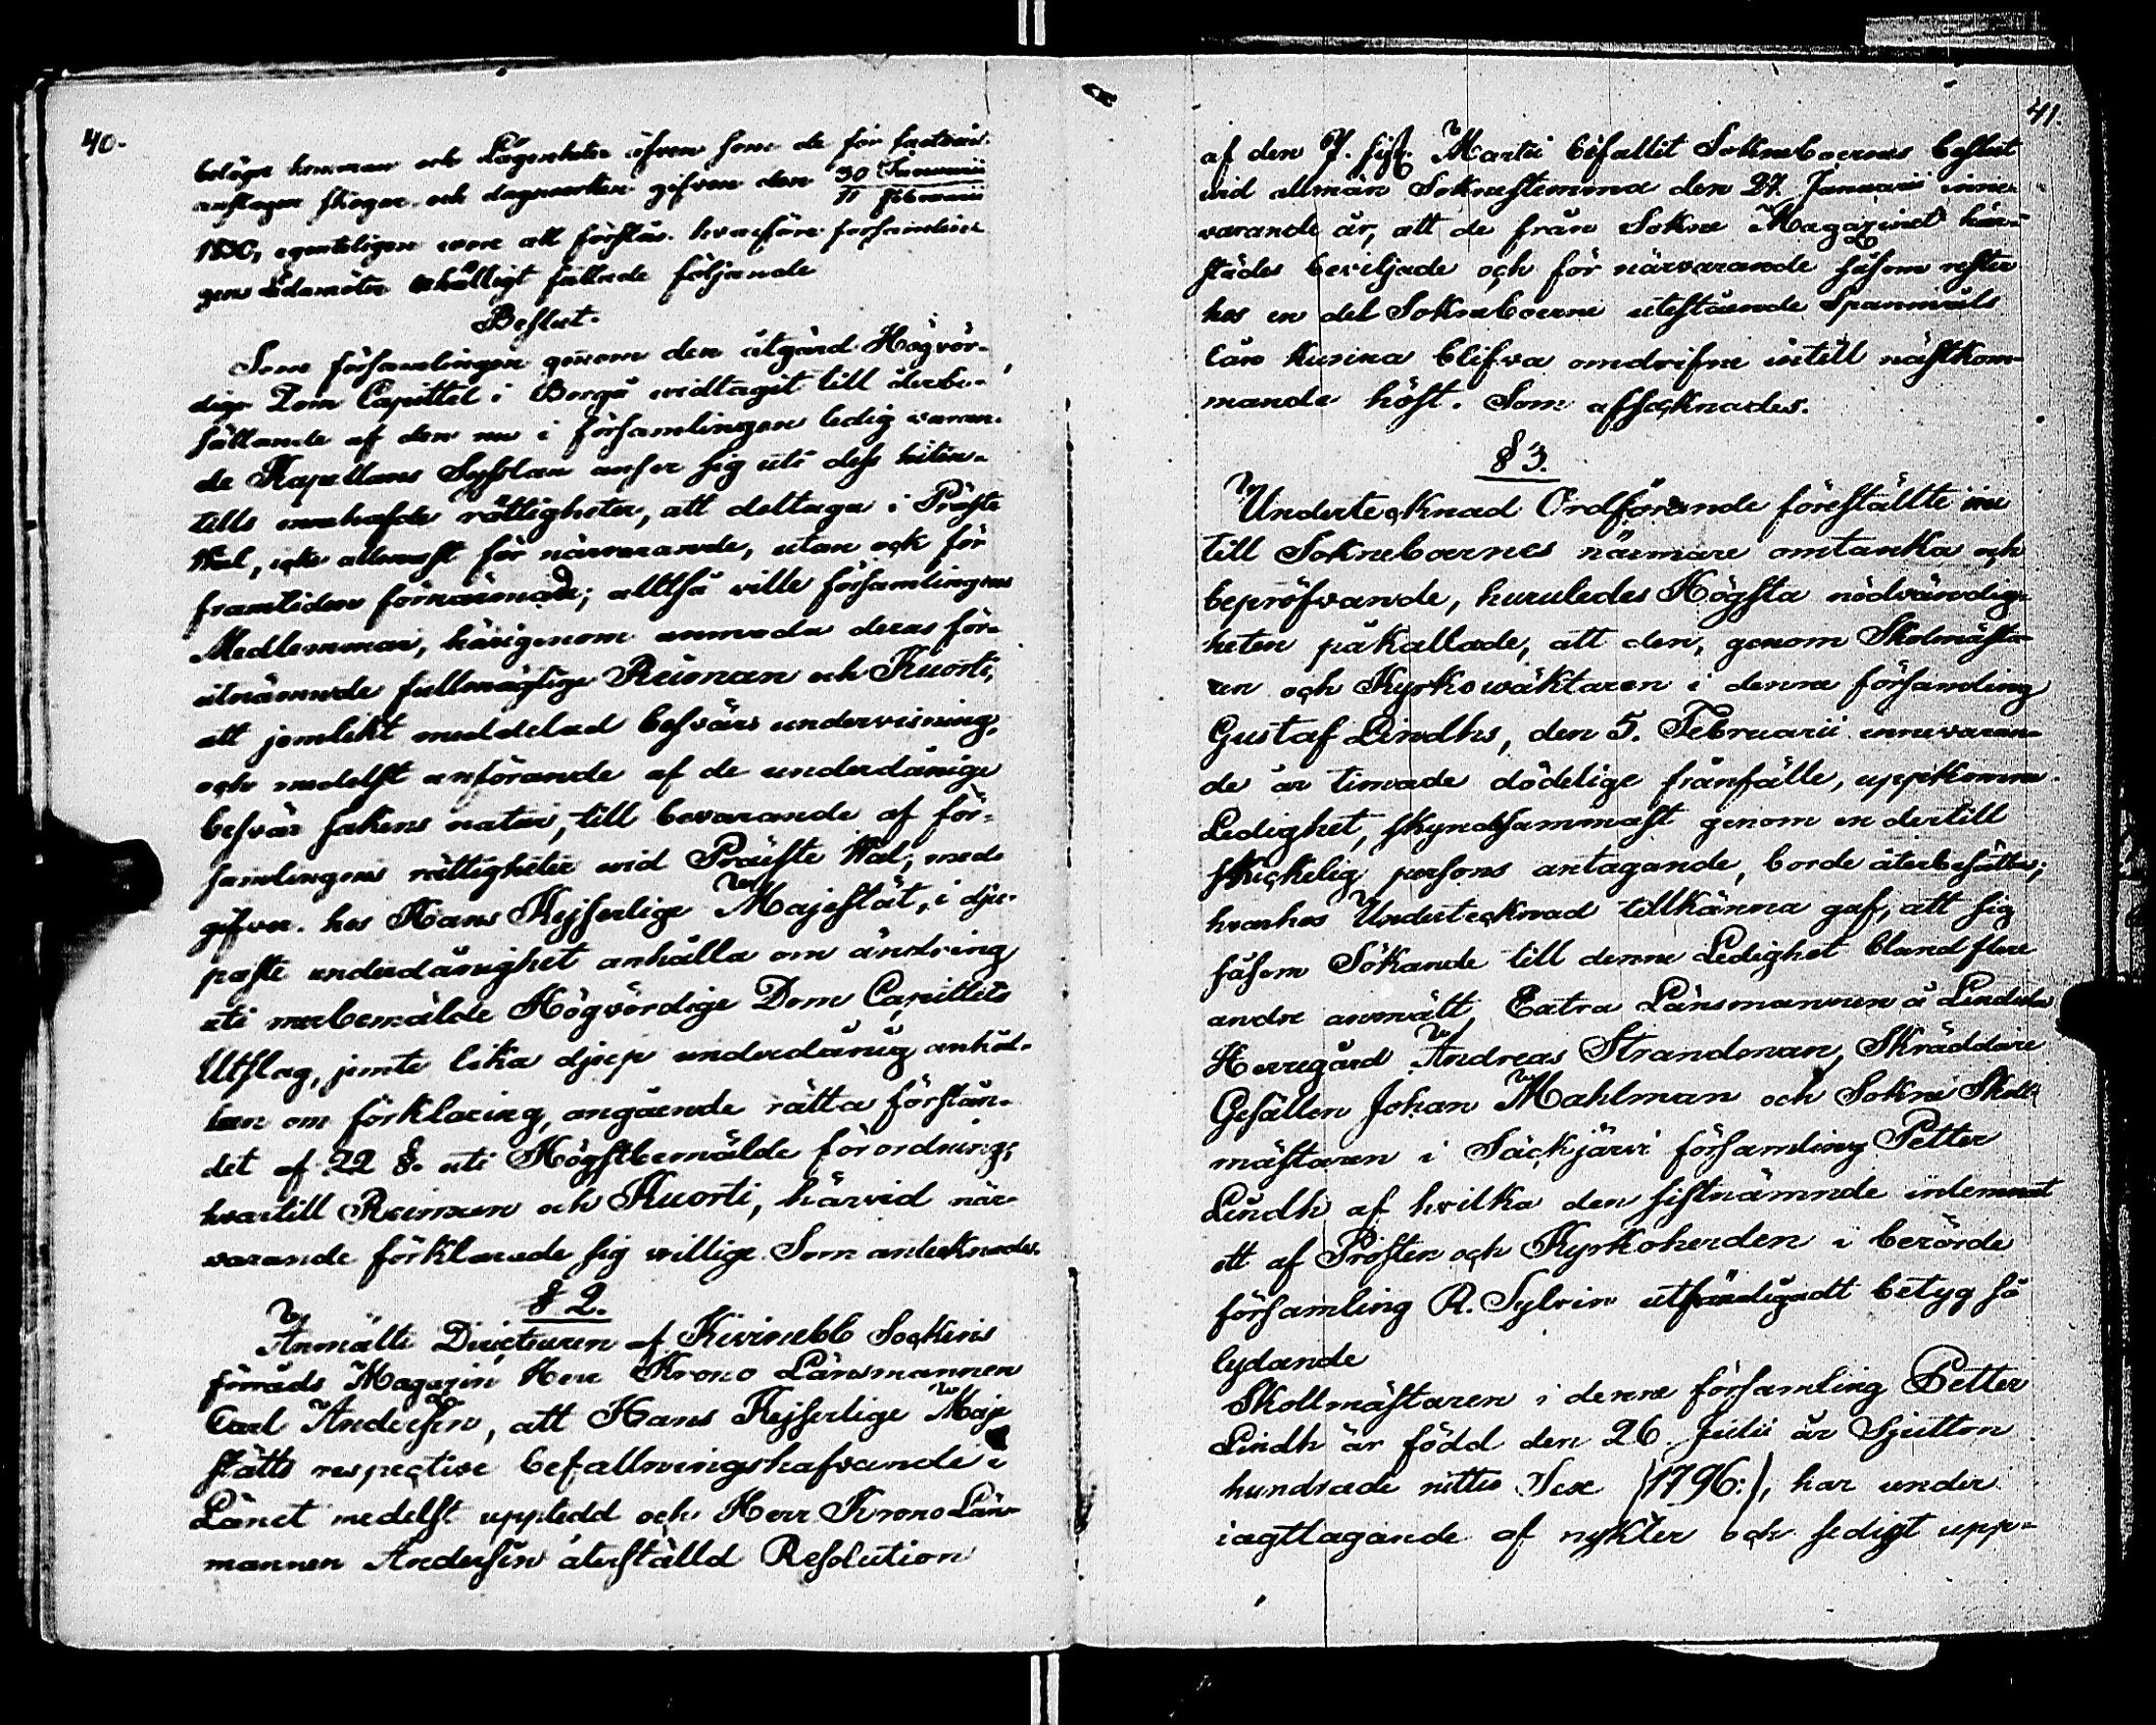 40.
belägne hemman och Lägenheter äfven som de för
anslagen skogar och dagsverken gifven den 30 Januarii
11 Februarii
1830, egenteligen vore att förstås. hvarföre församlin-
gens Ledamöter enhälligt fällade följande
Beslut.
Som församlingen genom den åtgärd Högvör-
dige Dom Capittel i Borgå vidtagit till återbe-
sättande af den nu i församlingen ledig varan-
de Kapellans Sysslan anser sig uti dess hitin-
tills innehafde rättigheter, att deltaga i Präste
Wal, icke allenast för närvarande, utan ock för
framtiden förnärmad; alltså ville församlingens
Medlemmar, härigenom anmoda deras för-
utnämnde fullmägtige Reiman och Kuorti,
att jemlikt meddelad besvärs undervisning,
och medelst anförande af de underdånige
besvär sakens natur, till bevarande af för-
samlingens rättigheter vid Präste Wal, med-
gifver. hos Hans Kejserlige Majestät, i dju-
paste underdånighet anhålla om ändring
uti merbemälde Högvördige Dom Capittels
Utslag, jemte lika djup underdånig anhål-
lan om förklaring, angående rätta förstån-
det af 22 §. uti Högstbemälde förordning;
hvartill Reiman och Kuorti, härvid när-
varande förklarade sig villige. Som antecknades.
§ 2.
Anmälte Directeuren af Kivinebb Sockens
förråds Magazin Herr Krono Länsmannen
Carl Andersin, att Hans Kejserlige Maje
stätts respective befallningshafvande i
Länet medelst uppledd och Herr Krono Läns
mannen Andersin återställd Resolution
41.
af den 7. sistl. Martii bifallit Sokneboernes beslut
vid allmän Soknestemma den 27. Januarii inne-
varande år, att de från Sokne Magazinet här-
städes beviljade och för närvarande såsom rester
hos en del Sokneboerne utestående Spanmåls
lån kunna blifva omdrifne intill nästkom-
mande höst. Som afsacknades.
§ 3.
Undertecknad Ordförande föreställte nu
till Sokneboernes närmare omtanka och
bepröfvande, huruledes Högsta nödvändig-
heten påkallade, att den, genom Skolmästa-
ren och Kyrkowäktaren i denne församling
Gustaf Lindhs, den 5. Februarii innevaran-
de år timade dödelige frånfälle, uppkomne
Ledighet, skyndsammast genom en dertill
skickelig persons antagande, borde återbesättas;
hvarhos Undertecknad tillkänna gaf, att sig
såsom Sökande till denne Ledighet bland flere
andre anmält Extra Länsmannen å Lindula
Herregård Andreas Strandman, Skräddare
Gesällen Johan Mahlman och Sokne Skoll-
mästaren i Säckjärvi församling Petter
Lindh af hvilka den sistnämnde inlemnat
ett af Prosten och Kyrkoherden i berörde
församling R. Sylvin utfärdigadt betyg så
lydande
Skollmästaren i denne församling Petter
Lindh är född den 26 Julii år Sjutton
hundrade nittio Sex (1796:), har under
iagttagande af nykter och sedigt upp-